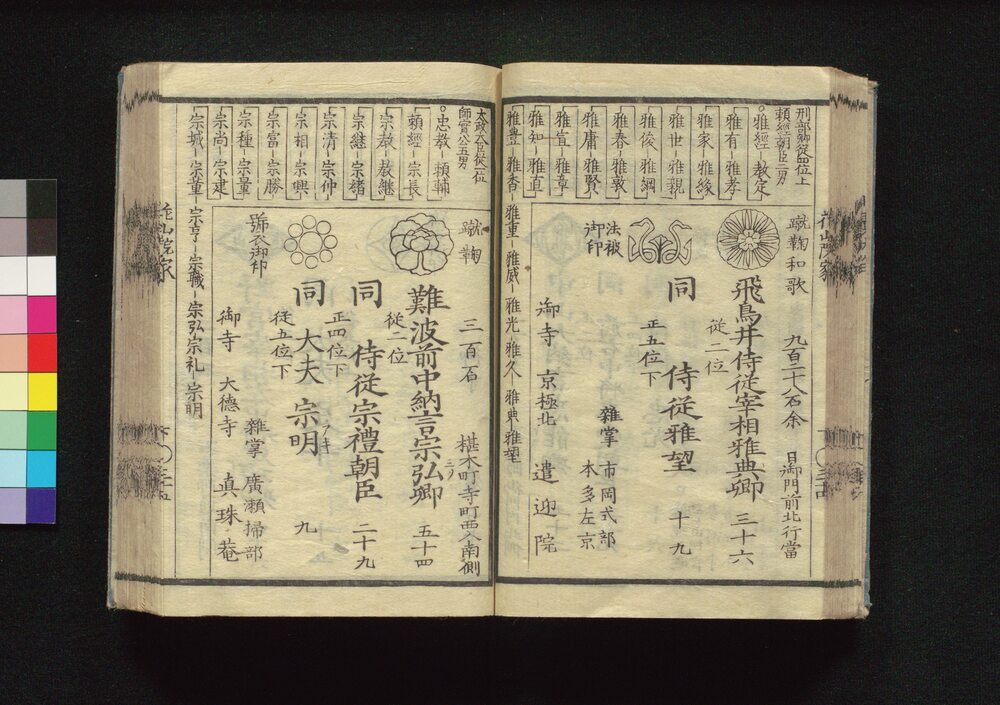 花山院家
刑部卿從四位上
頼經朝臣二男
雅經－教定
雅有－雅孝
雅家－雅緣
雅世－雅親
雅俊－雅綱
雅春－雅敦
雅庸－雅賢
雅宣－雅章
雅知－雅直
雅豊－雅香－雅重－雅威－雅光－雅久－雅典－雅望
蹴鞠和歌　九百二十八石余　日御門前北行當
飛鳥井侍從宰相雅典卿　三十六
從二位
同　侍從雅望　十九
正五位下
法被
御印
雜掌　市岡式部
本多左京
御寺　京極北　遣迎院
太政大臣從一位
師實公五男
忠教－頼輔
頼經－宗長
宗教－教繼
宗繼－宗緒
宗清－宗仲
宗相－宗興
宗富－宗勝
宗種－宗量
宗尚－宗建
宗城－宗董－宗亨－宗職－宗弘－宗礼－宗明
蹴鞠　三百石　椹木町寺町西入南側
難波前中納言宗弘卿　五十四
從二位
同　侍從宗禮朝臣　二十九
正四位下
同　大夫　宗明　九
アキ
從五位下
御印
雜掌　廣瀬掃部
御寺　大德寺　真珠菴
花山院家